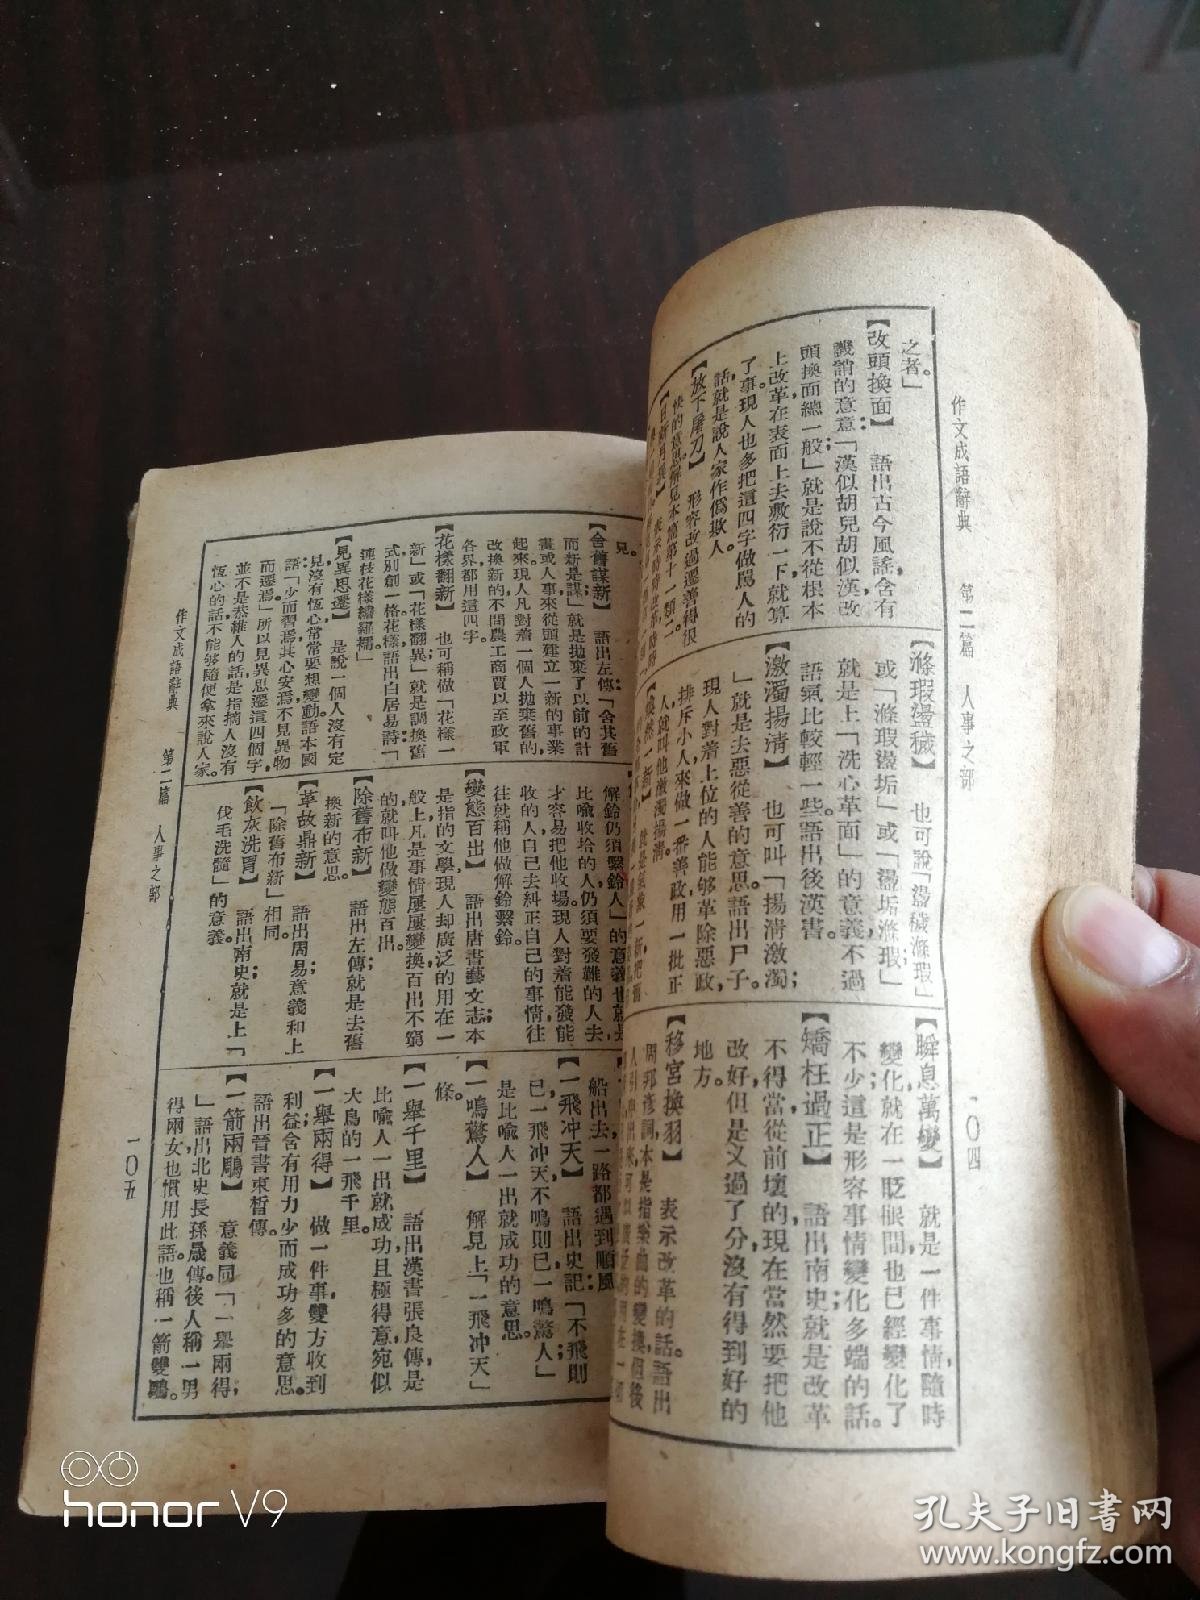 作文成語辭典　第二篇　人事之部　一〇四
之者。」
【改頭換面】　語出古今風謠含有
譏誚的意意;「漢似胡兒胡似漢改
頭換面總一般」就是說不從根本
上改革在表面上去敷衍一下,就算
了事。現人也多把這四字做罵人的
話,就是說人家作僞欺人。
【放下屠刀】　形容改過遷善得很
快的意思。解見本篇第十一類二
【滌瑕盪穢】　也可說「盪穢滌瑕」
或「滌瑕盪垢」或「盪垢滌瑕」
就是上「洗心革面」的意義不過
語氣比較輕一些。語出後漢書。
【激濁揚淸】　也可叫「揚淸激濁;
」就是去惡從善的意思。語出尸子。
現人對着上位的人能够革除惡政,
排斥小人,來做一番善政,用一批正
人,就叫他激濁揚淸。
【煥然一新】
【瞬息萬變】　就是一件事情,隨時
變化,就在一眨眼間,也已經變化了
不少;這是形容事情變化多端的話。
【矯枉過正】　語出南史;就是改革
不得當。從前壞的,現在當然要把他
改好,但是又過了分,沒有得到好的
地方。
【移宮換羽】　表示改革的話。語出
周邦彥詞,本是指樂曲的變換,但後
見。
【舍舊謀新】　語出左傳;「舍其舊
而新是謀」就是拋棄了以前的計
畫或人事,來從頭建立一新的事業
起來。現人凡對着一個人拋棄舊的
改換新的,不問農工商賈以至政軍
各界,都用這四字
【花樣翻新】　也可稱做「花樣一
新」或「花樣翻異」就是調換舊
式,別創一格。花樣語出白居易詩「
連枝花樣繡羅襦」
【見異思遷】　是說一個人沒有定
見沒有恆心,常常要想變動。語本國
語「少而習焉,其心安焉,不見異物
而遷焉」所以見異思遷這四個字,
並不是恭維人的話,是指摘人沒有
恆心的話,不能够隨便拿來說人家。
解鈴仍須繫鈴人」的意義也就是
比喩收拾的人,仍須要發難的人去,
才容易把他收場。現人對着能發能
收的人,自己去糾正自己的事情,往
往就稱他做解鈴繫鈴
【變態百出】　語出唐書藝文志,本
是指的文學,現人却廣泛的用在一
般上,凡是事情屢屢變換,百出不窮
的,就叫他做變態百出。
【除舊布新】　語出左傳,就是去舊
換新的意思。
【革故鼎新】　語出周易;意義和上
「除舊布新」相同。
【飮灰洗胃】　語出南史;就是上「
伐毛洗髓」的意義。
船出去,一路都遇到順風
【一飛冲天】　語出史記;「不飛則
已,一飛冲天,不鳴則已,一鳴驚人」
是比喩人一出就成功的意思。
【一鳴驚人】　解見上「一飛冲天」
條。
【一舉千里】　語出漢書張良傳,是
比喩人一出就成功,且極得意,宛似
大鳥的一飛千里。
【一舉兩得】　做一件事,雙方收到
利益。含有用力少而成功多的意思。
語出晉書束晳傳。
【一箭兩鵰】　意義同「一舉兩得;
」語出北史長孫晟傳。後人稱一男
得兩女,也慣用此語。也稱一箭雙鵰。
作文成語辭典　第二篇　人事之部　一〇五
honor V9
孔夫子旧書网
www.kongfz.com